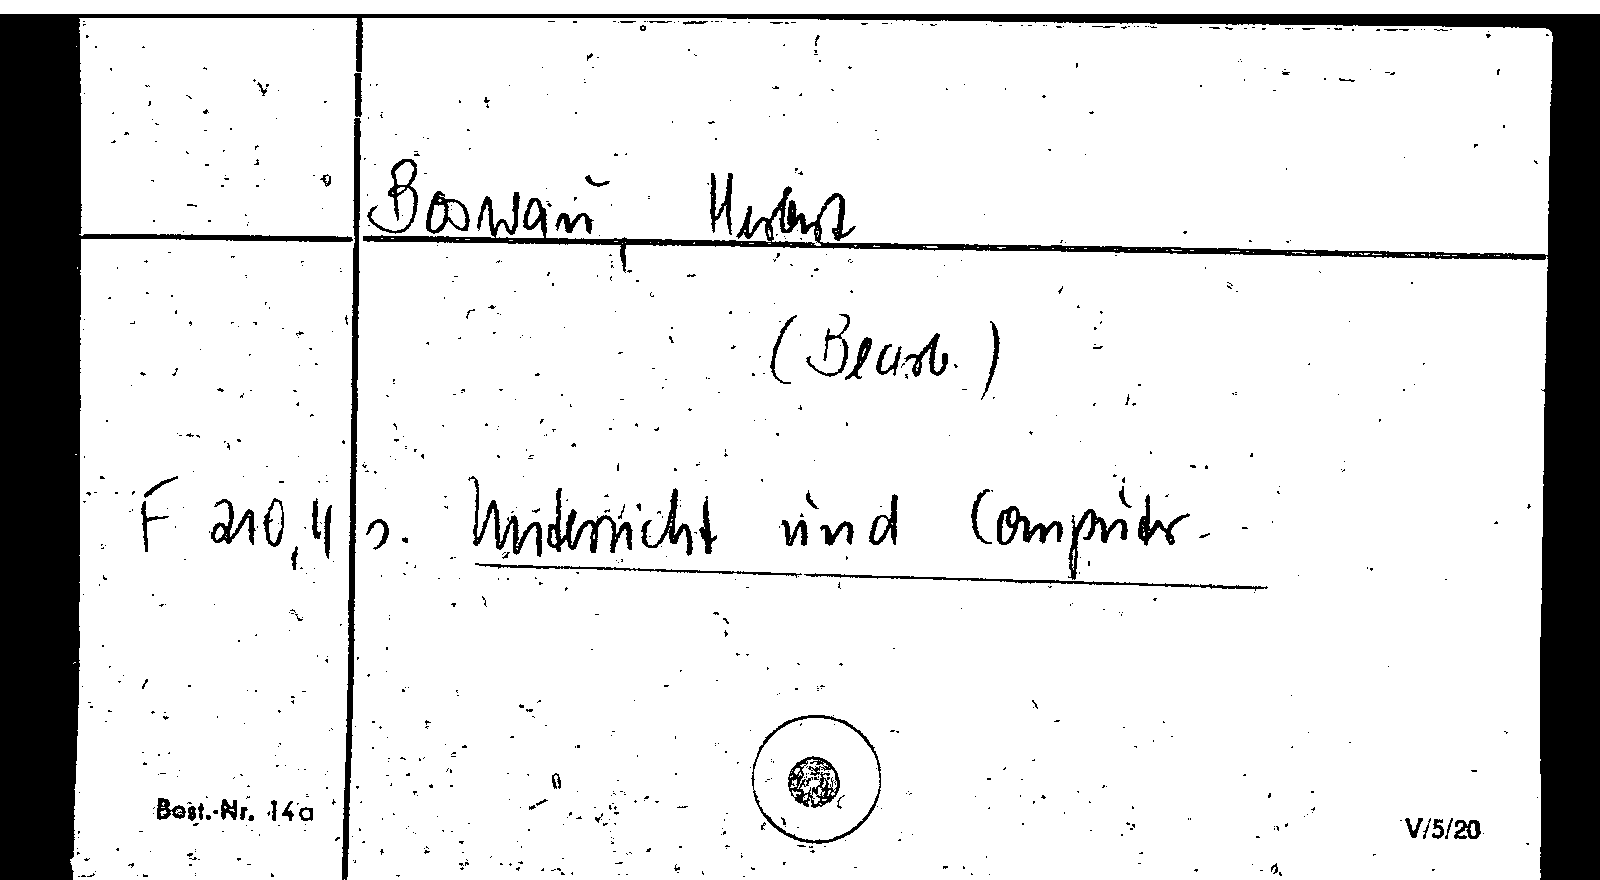 Boswau, Herbert
(Bearb.)
F 210,4 s. Unterricht und Computer.
Best.-Nr. 14a
V/5/20